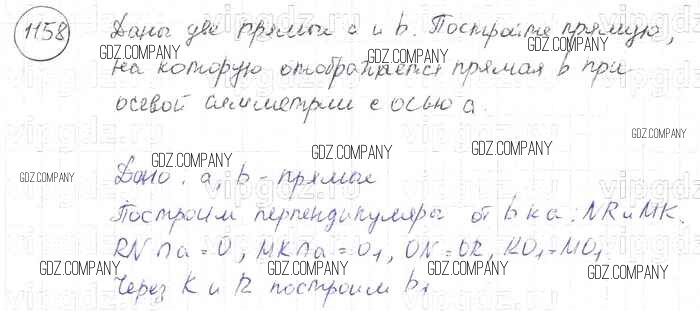 1158 Даны две прямые a и b. Постройте прямую,
на которую отображается прямая b при
осевой симметрии с осью a.
Дано: a, b - прямые
Построим перпендикуляры от b к a: NR и MK.
RN ∩ a = O, MK ∩ a = O₁, ON = OR, KO₁ = MO₁
Через K и R построим b₁
GDZ.COMPANY
GDZ.COMPANY
GDZ.COMPANY
GDZ.COMPANY
GDZ.COMPANY
GDZ.COMPANY
GDZ.COMPANY
GDZ.COMPANY
GDZ.COMPANY
GDZ.COMPANY
GDZ.COMPANY
GDZ.COMPANY
GDZ.COMPANY